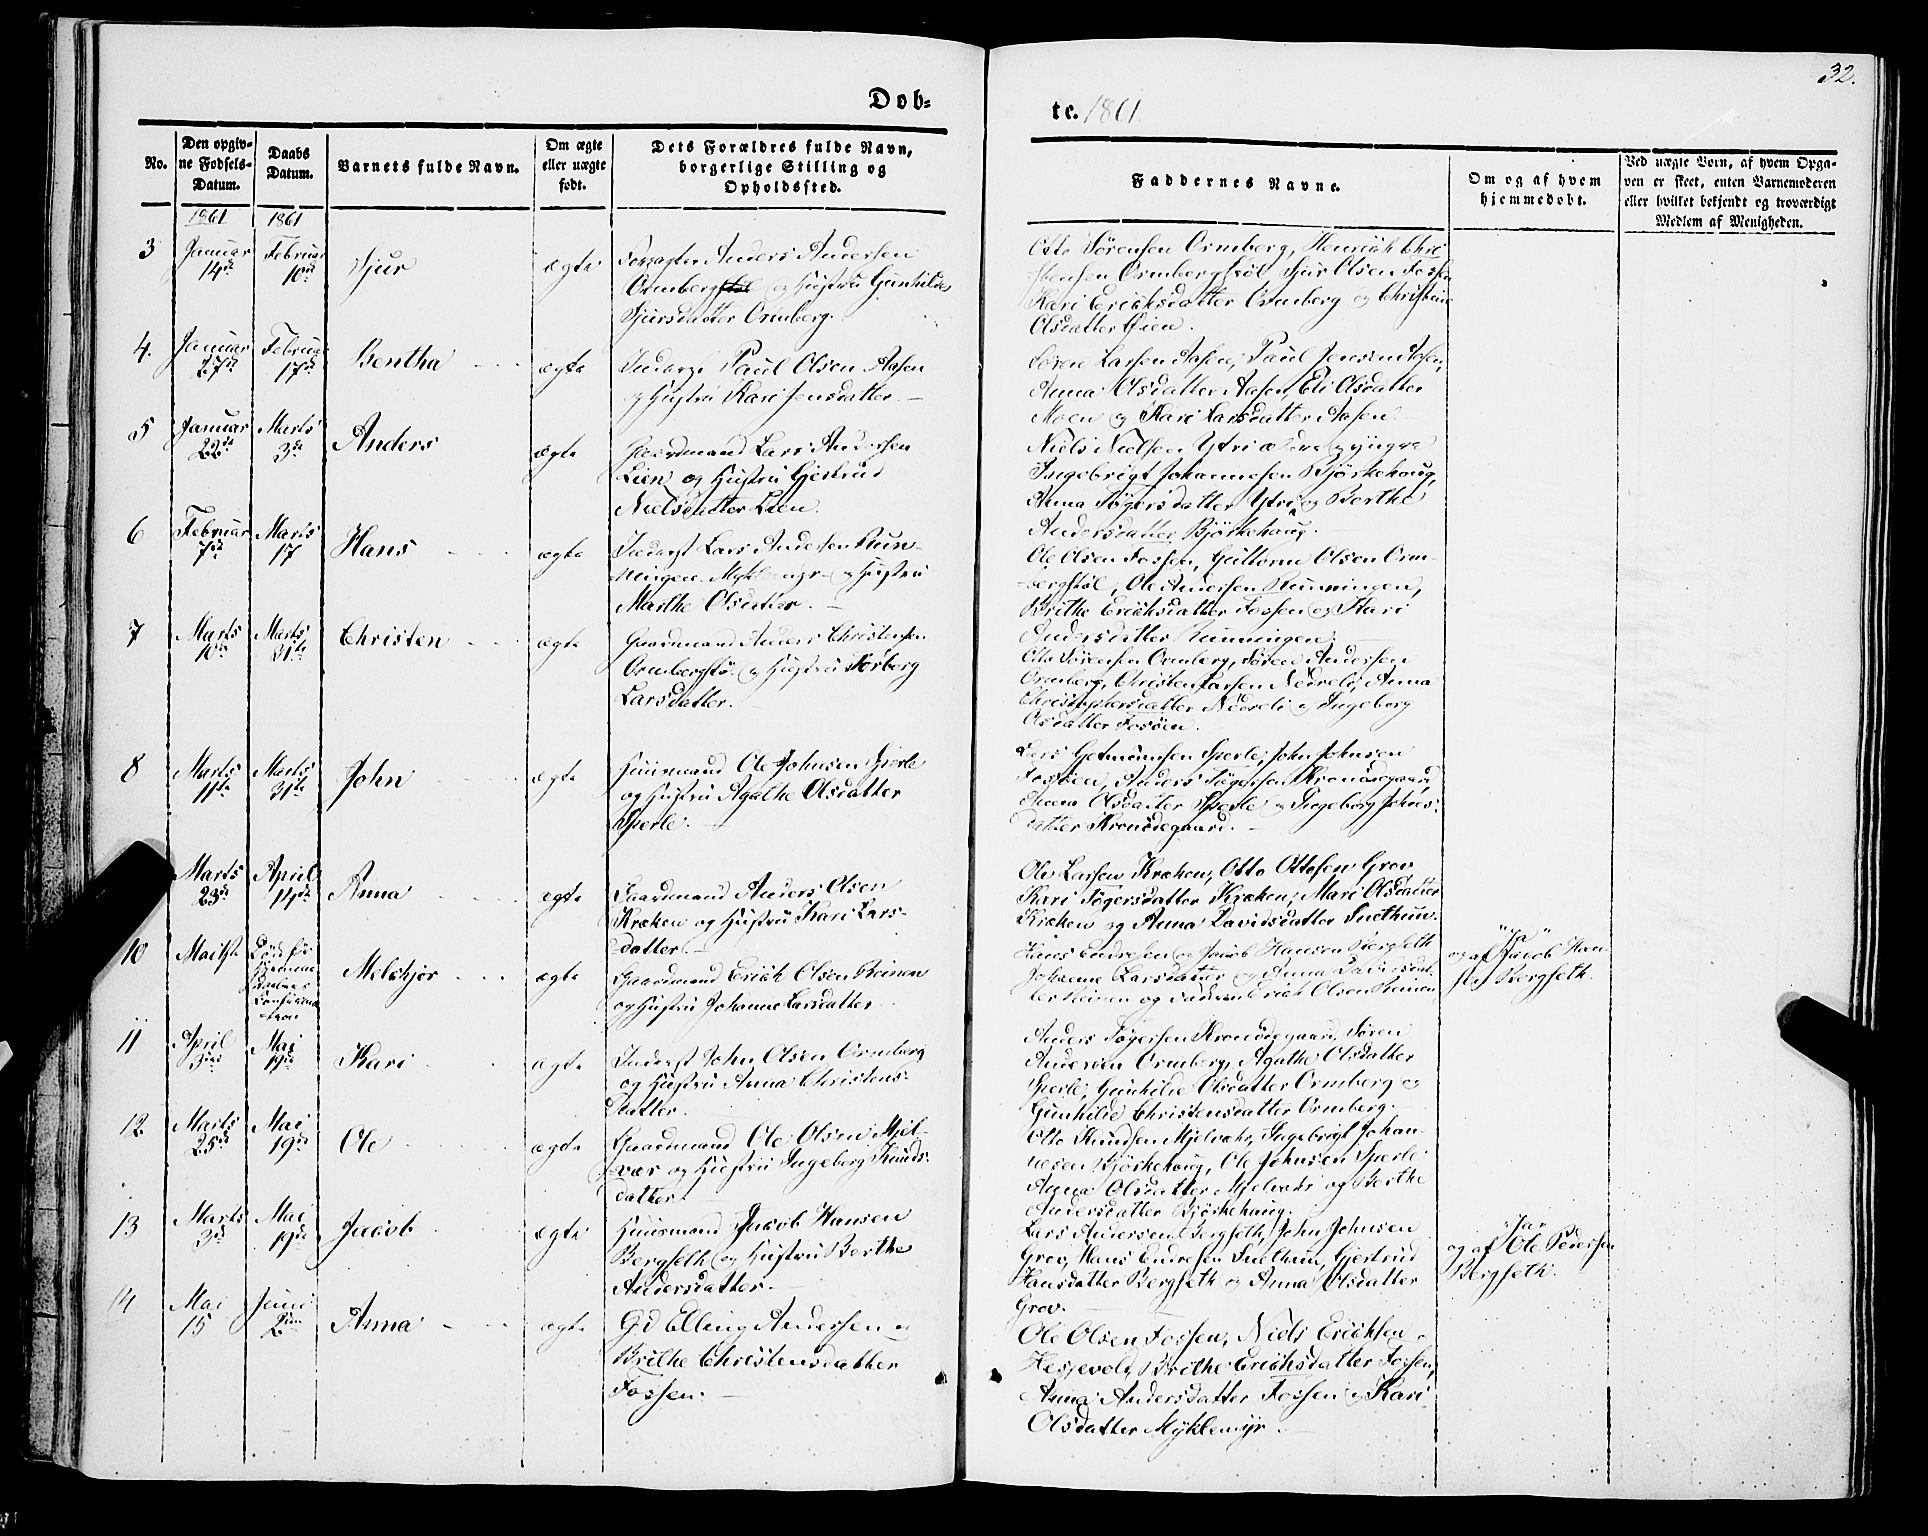 32.
Døb-
te. 1861.
No.
Den opgiv-
ne Fødsels-
Datum.
Daabs
Datum.
Barnets fulde Navn.
Om ægte
eller uægte
født.
Dets Forældres fulde Navn,
borgerlige Stilling og
Opholdssted.
Faddernes Navne.
Om og af hvem
hjemmedøbt.
Ved uægte Børn, af hvem Opga-
ven er skeet, enten Barnemoderen
eller hvilket bekjendt og troværdigt
Medlem af Menigheden.
1861
1861
3
Januar
14de
Februar
10de
Sjur
ægte
Anders Andersen
Ormberg og Hustru Gunhilde
Sjursdatter Ormberg.
Otto Sørensen Ormberg, Henrich Chri-
stensen Ormbergstøl, Sjur Olsen Fossen
Kari Erichsdatter Ormberg og Christine
Olsdatter Øien.
4.
Januar
27de
Februar
17de
Bentha
ægte
Inderst Paul Olsen Aasen
og Hustru Kari Jensdatter.
Søren Larsen Aasen, Paul Jensen Aasen,
Anna Olsdatter Aasen, Eli Olsdatter
Moen og Kari Larsdatter Aasen.
5
Januar
22de
Marts
3de
Anders
ægte
Gaardmand Lars Andersen
Lien og Hustru Gjertrud
Nielsdatter Lien.
Niels Nielsen Ytri ældre og yngre
Ingebrigt Johannesen Bjørkehoug,
Anna Tøgersdatter Ytri og Berthe
Andersdatter Bjørkehoug.
6
Februar
7de
Marts
17
Hans
ægte
Inderst Lars Andersen Run-
ningen og Hustru
Marthe Olsdatter.
Ole Olsen Fossen, Guttorm Olsen Orm-
bergstøl, Ole Andersen Runningen,
Brithe Erichsdatter Fossen og Kari
Andersdatter Runningen.
7
Marts
10de
Marts
31te
Christen
ægte
Gaardmand Anders Christensen
Ormbergstøl og Hustru Torborg
Larsdatter.
Otto Sørensen Ormberg, Søren Andersen
Ormberg, Christen Larsen Nedreli, Anna
Christophersdatter Nedreli og Ingeborg
Olsdatter Fosøen.
8
Marts
11te
Marts
31te
John
ægte
Huusmand Ole Johnsen Sperle
og Hustru Agathe Olsdatter
Sperle.
Lars Sperle, John Johnsen
Fosøen, Anders Tøgersen Kronødegaard,
Anna Olsdatter Sperle og Ingeborg Johns-
datter Kronødegaard.
Marts
23de
April
14de
Anna
ægte
Gaardmand Anders Olsen
Kræken og Hustru Kari Lars-
datter.
Ole Larsen Kræken, Otto Ottosen Grov
Kari Tøgersdatter Kræken, Mari Olsdatter
Kræken og Anna Davidsdatter Snethun.
10
Død før
Hjemme
Daabens
Confirma-
tion
Melchjor
ægte
Gaardmand Erich Olsen Reinen
og Hustru Johanne Larsdatter
Hans Endresen og Jacob Hansen Bergseth
Johanne Larsdatter og Anna Davidsdat-
ter Reinen og Faderen Erich Olsen Reinen
"Ja"
og af Jacob Han-
sen Bergseth.
11
April
3die
Mai
19de
Kari
ægte
Inderst John Olsen Ormberg
og Hustru Anna Christens-
datter.
Anders Tøgersen Kronødegaard, Søren
Andersen Ormberg, Agathe Olsdatter
Sperle, Gunhilde Olsdatter Ormberg og
Gunhilde Christensdatter Ormberg.
12.
Marts
25de
Mai
19de
Ole
ægte
Gaardmand Ole Olsen Mjel-
vær og Hustru Ingeborg Knuds-
datter.
Otto Knudsen Mjelvæhr, Ingebrigt Johan-
nesen Bjørkehoug, Ole Johnsen Sperle
Anna Olsdatter Mjelvæhr og Berthe
Andersdatter Bjørkehoug.
13
Marts
3de
Mai
19de
Jacob
ægte
Huusmand Jacob Hansen
Bergseth og Hustru Berthe
Andersdatter.
Lars Andersen Bergseth, John Johnsen
Grov, Hans Endresen Snethun, Gjertrud
Hansdatter Bergseth og Anna Olsdatter
Grov.
"Ja"
og af Ole Pedersen
Bergseth.
14
Mai
15
Juni
2den
Anna
ægte
Gd Elling Andersen og
Brithe Christensdatter
Fossen.
Ole Olsen Fossen, Niels Erichsen
Hesjevold, Brithe Erichsdatter Fossen,
Anna Andersdatter Fossen og Kari
Olsdatter Myklemyr.